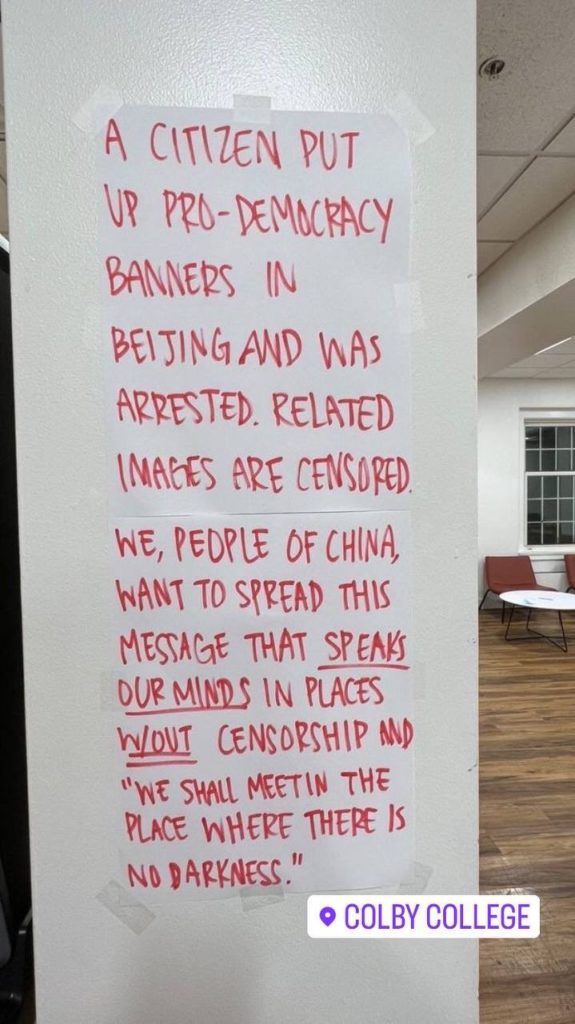 A CITIZEN PUT
UP PRO-DEMOCRACY
BANNERS IN
BEIJING AND WAS
ARRESTED. RELATED
IMAGES ARE CENSORED.
WE, PEOPLE OF CHINA,
WANT TO SPREAD THIS
MESSAGE THAT SPEAKS
OUR MINDS IN PLACES
W/OUT CENSORSHIP AND
"WE SHALL MEET IN THE
PLACE WHERE THERE IS
NO DARKNESS."
COLBY COLLEGE